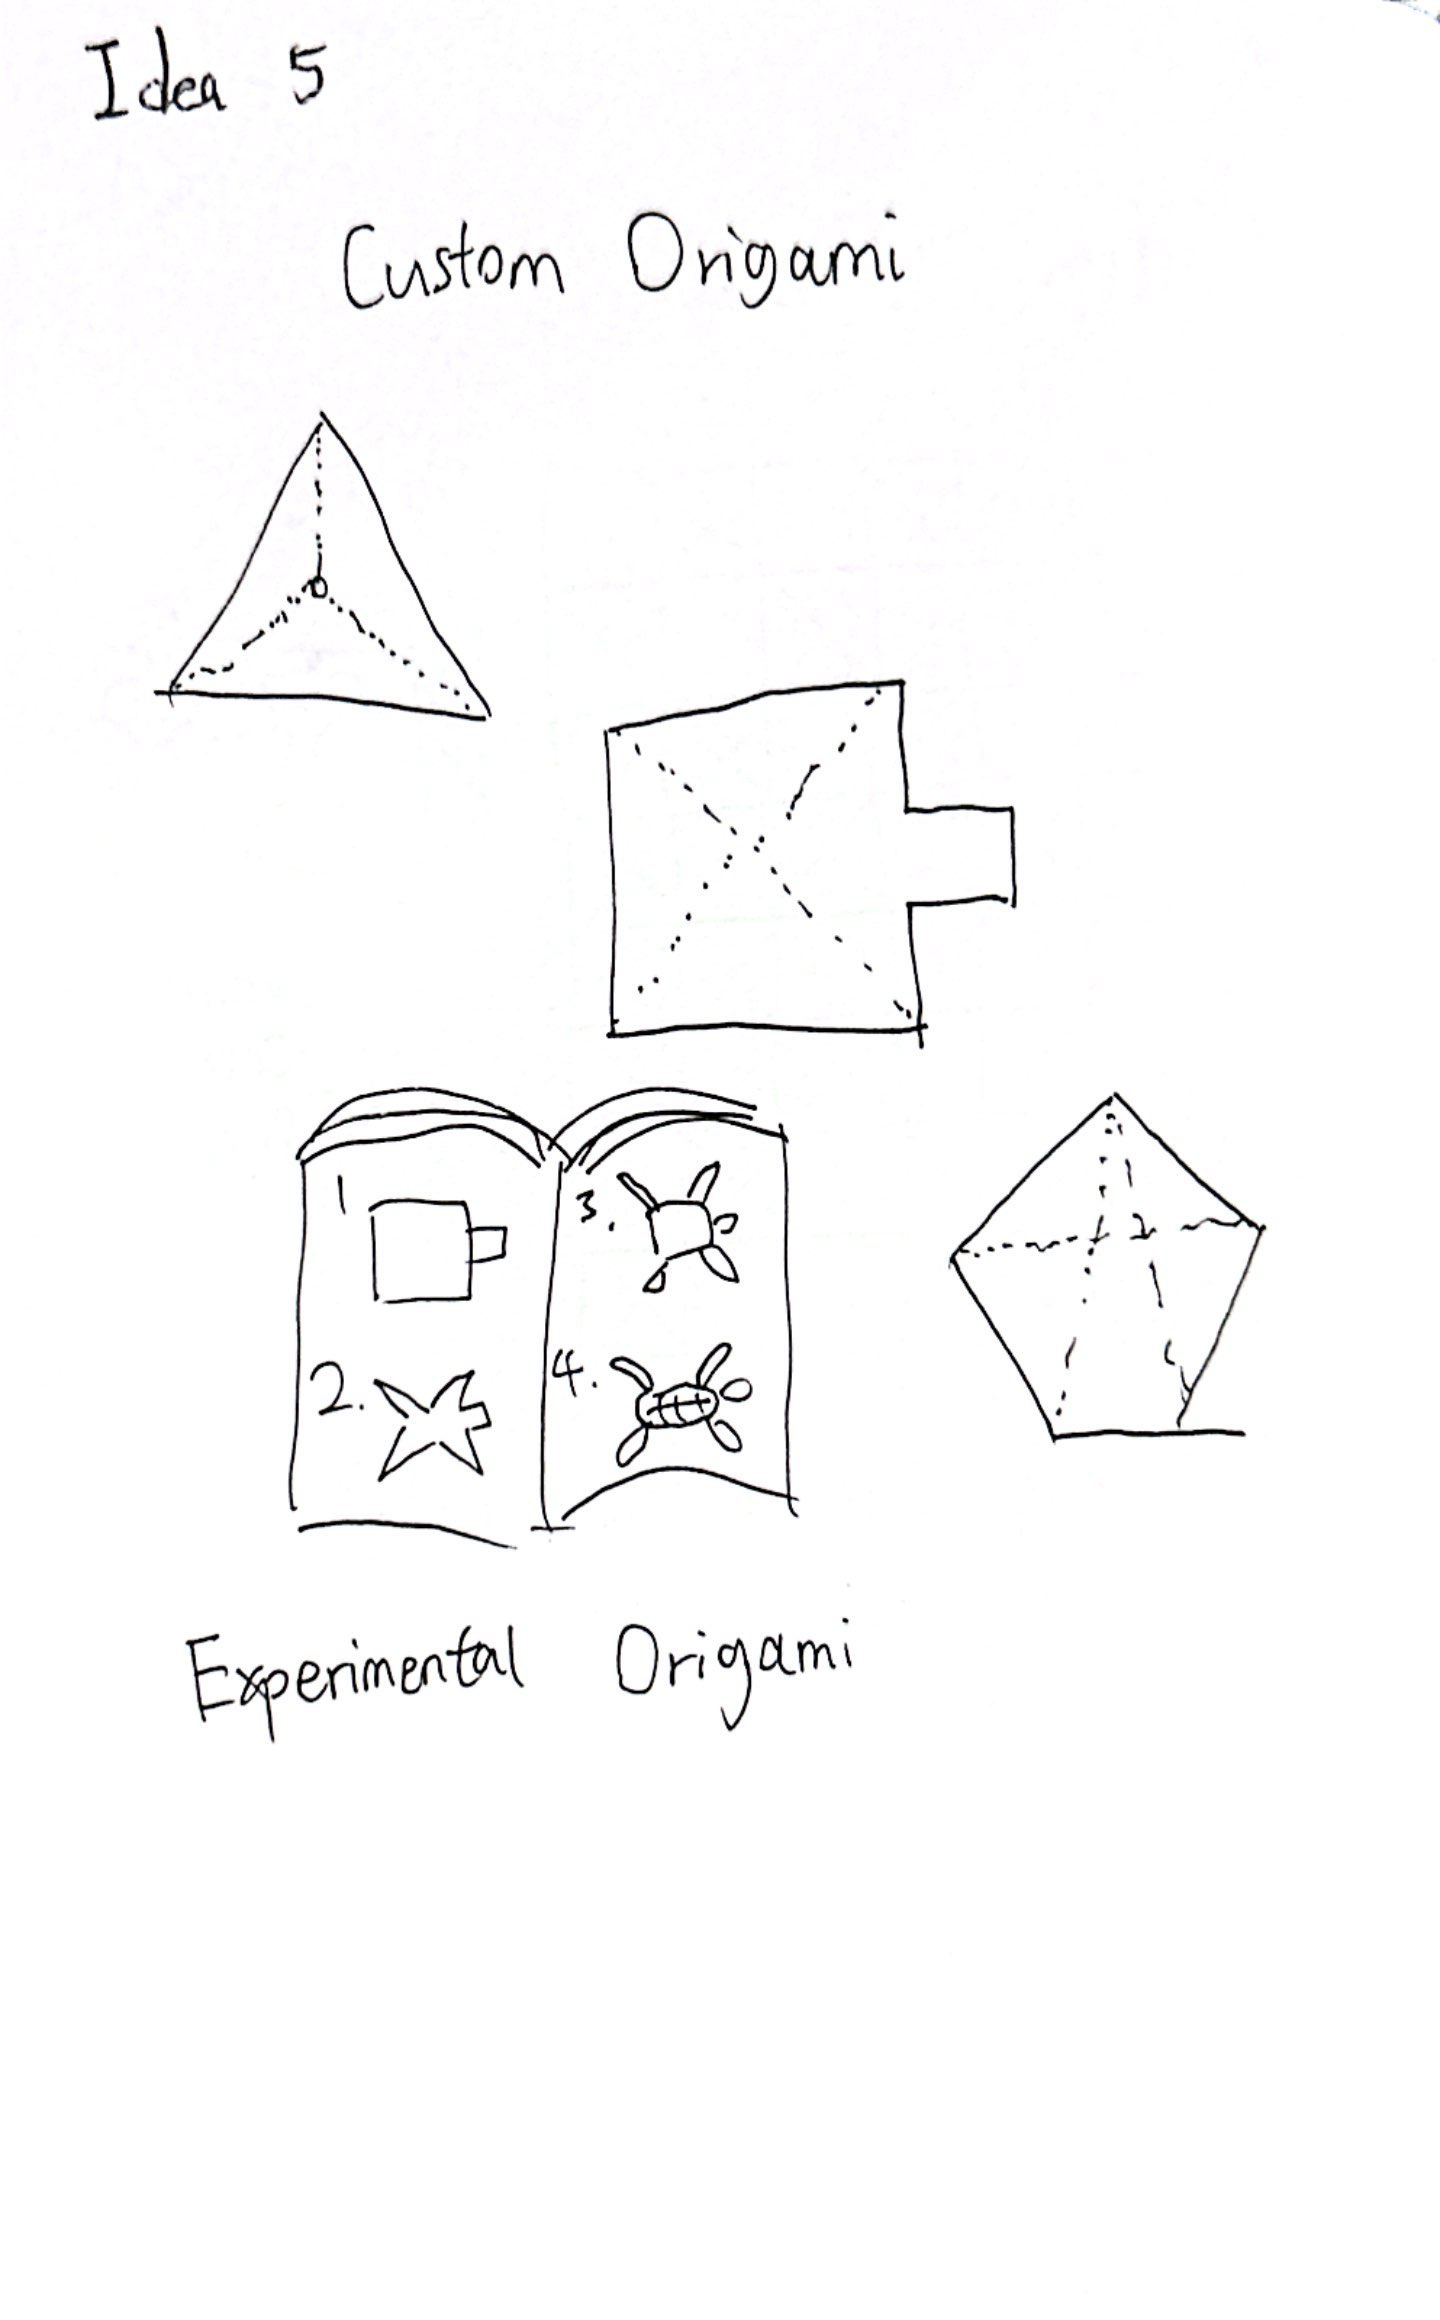 Idea 5
Custom Origami
1
2.
3.
4.
Experimental Origami